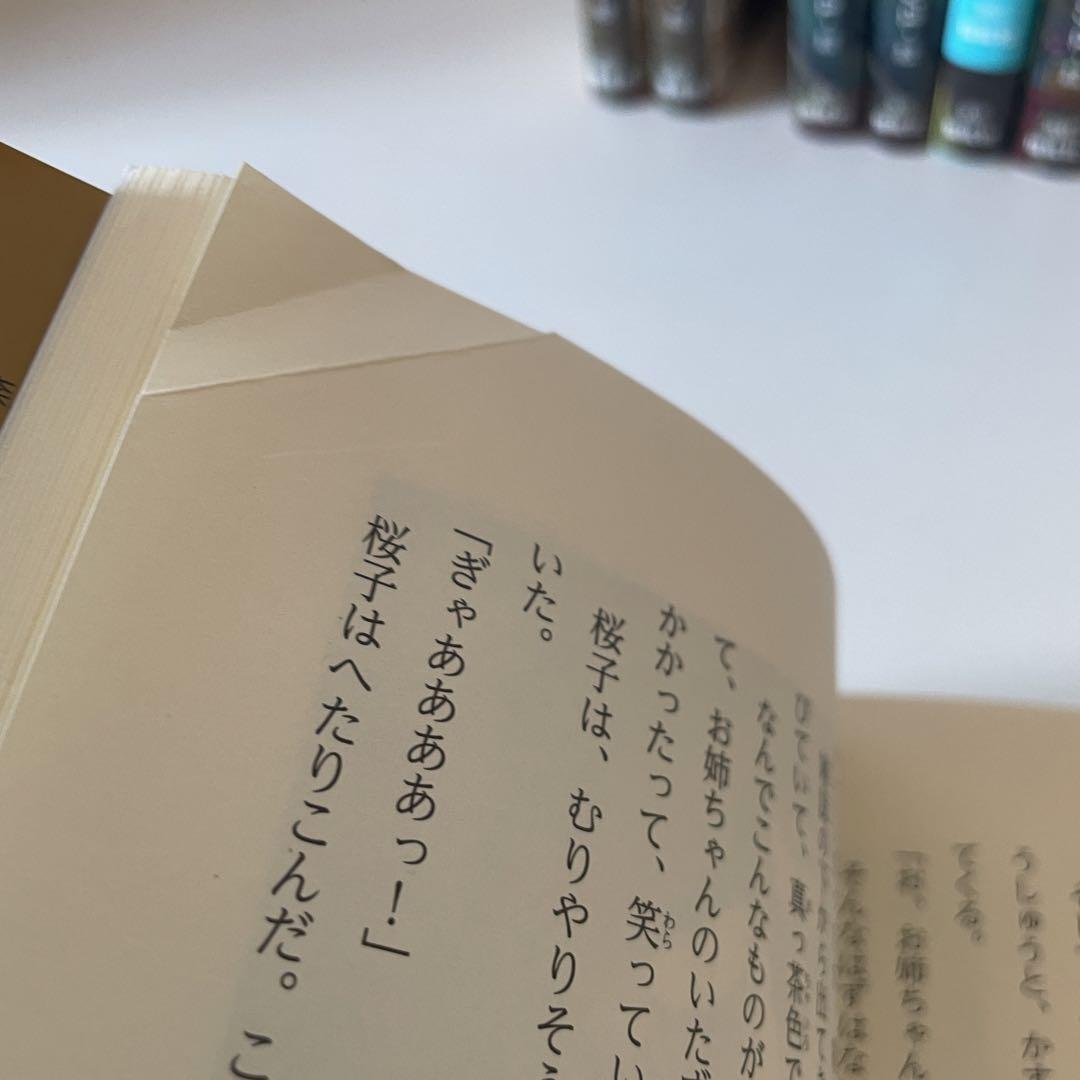 うしゅうと、かす
てくる。
「お、お姉ちゃん
そんなはずはな
びていて、真っ茶色で
なんでこんなものが
て、お姉ちゃんのいたず
かかったって、笑ってい
わら
桜子は、むりやりそう
いた。
「ぎゃああああっ！」
桜子はへたりこんだ。こ